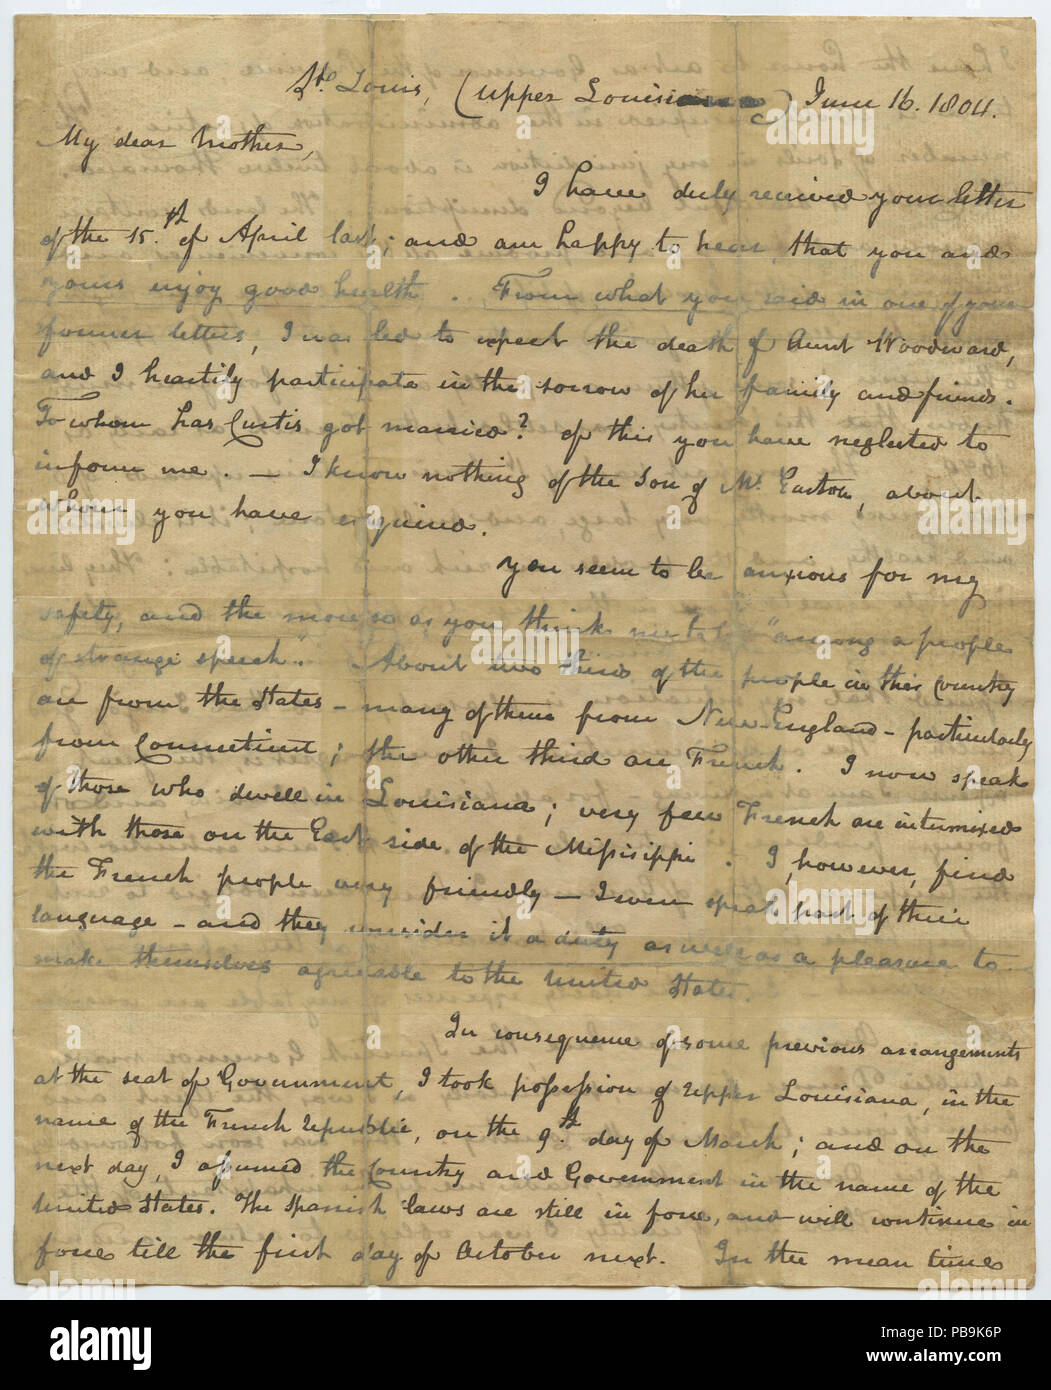 St. Louis, (Upper Louisiana) June 16. 1804.
My dear Mother,
I have duly received your letter
of the 15.th of April last; and am happy to hear that you and
yours enjoy good health. From what you said in one of your
former letters, I was led to expect the death of Aunt Woodward,
and I heartily participate in the sorrow of her family and friends.
To whom has Curtis got married? of this you have neglected to
inform me. — I know nothing of the Son of Mr. Easton, about
whom you have enquired.
You seem to be anxious for my
safety, and the more so as you think me to be "among a people
of strange speech." About two thirds of the people in this Country
are from the States — many of them from New-England — particularly
from Connecticut; the other third are French. I now speak
of those who dwell in Louisiana; very few French are intermixed
with those on the East side of the Missisippi. I, however, find
the French people very friendly — I even speak part of their
language — and they consider it a duty as well as a pleasure to
make themselves agreeable to the United States.
In consequence of some previous arrangements
at the seat of Government, I took possession of Upper Louisiana, in the
name of the French republic, on the 9.th day of March; and on the
next day, I assumed the Country and Government in the name of the
United States. The Spanish laws are still in force, and will continue in
force till the first day of October next. In the mean time
alamy
Image ID: PB9K6P
www.alamy.com